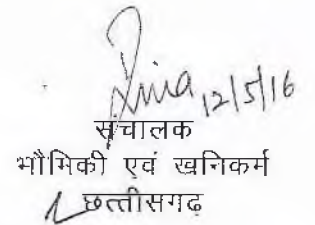 12/5/16
संचालक
भौमिकी एवं खनिकर्म
छत्तीसगढ़